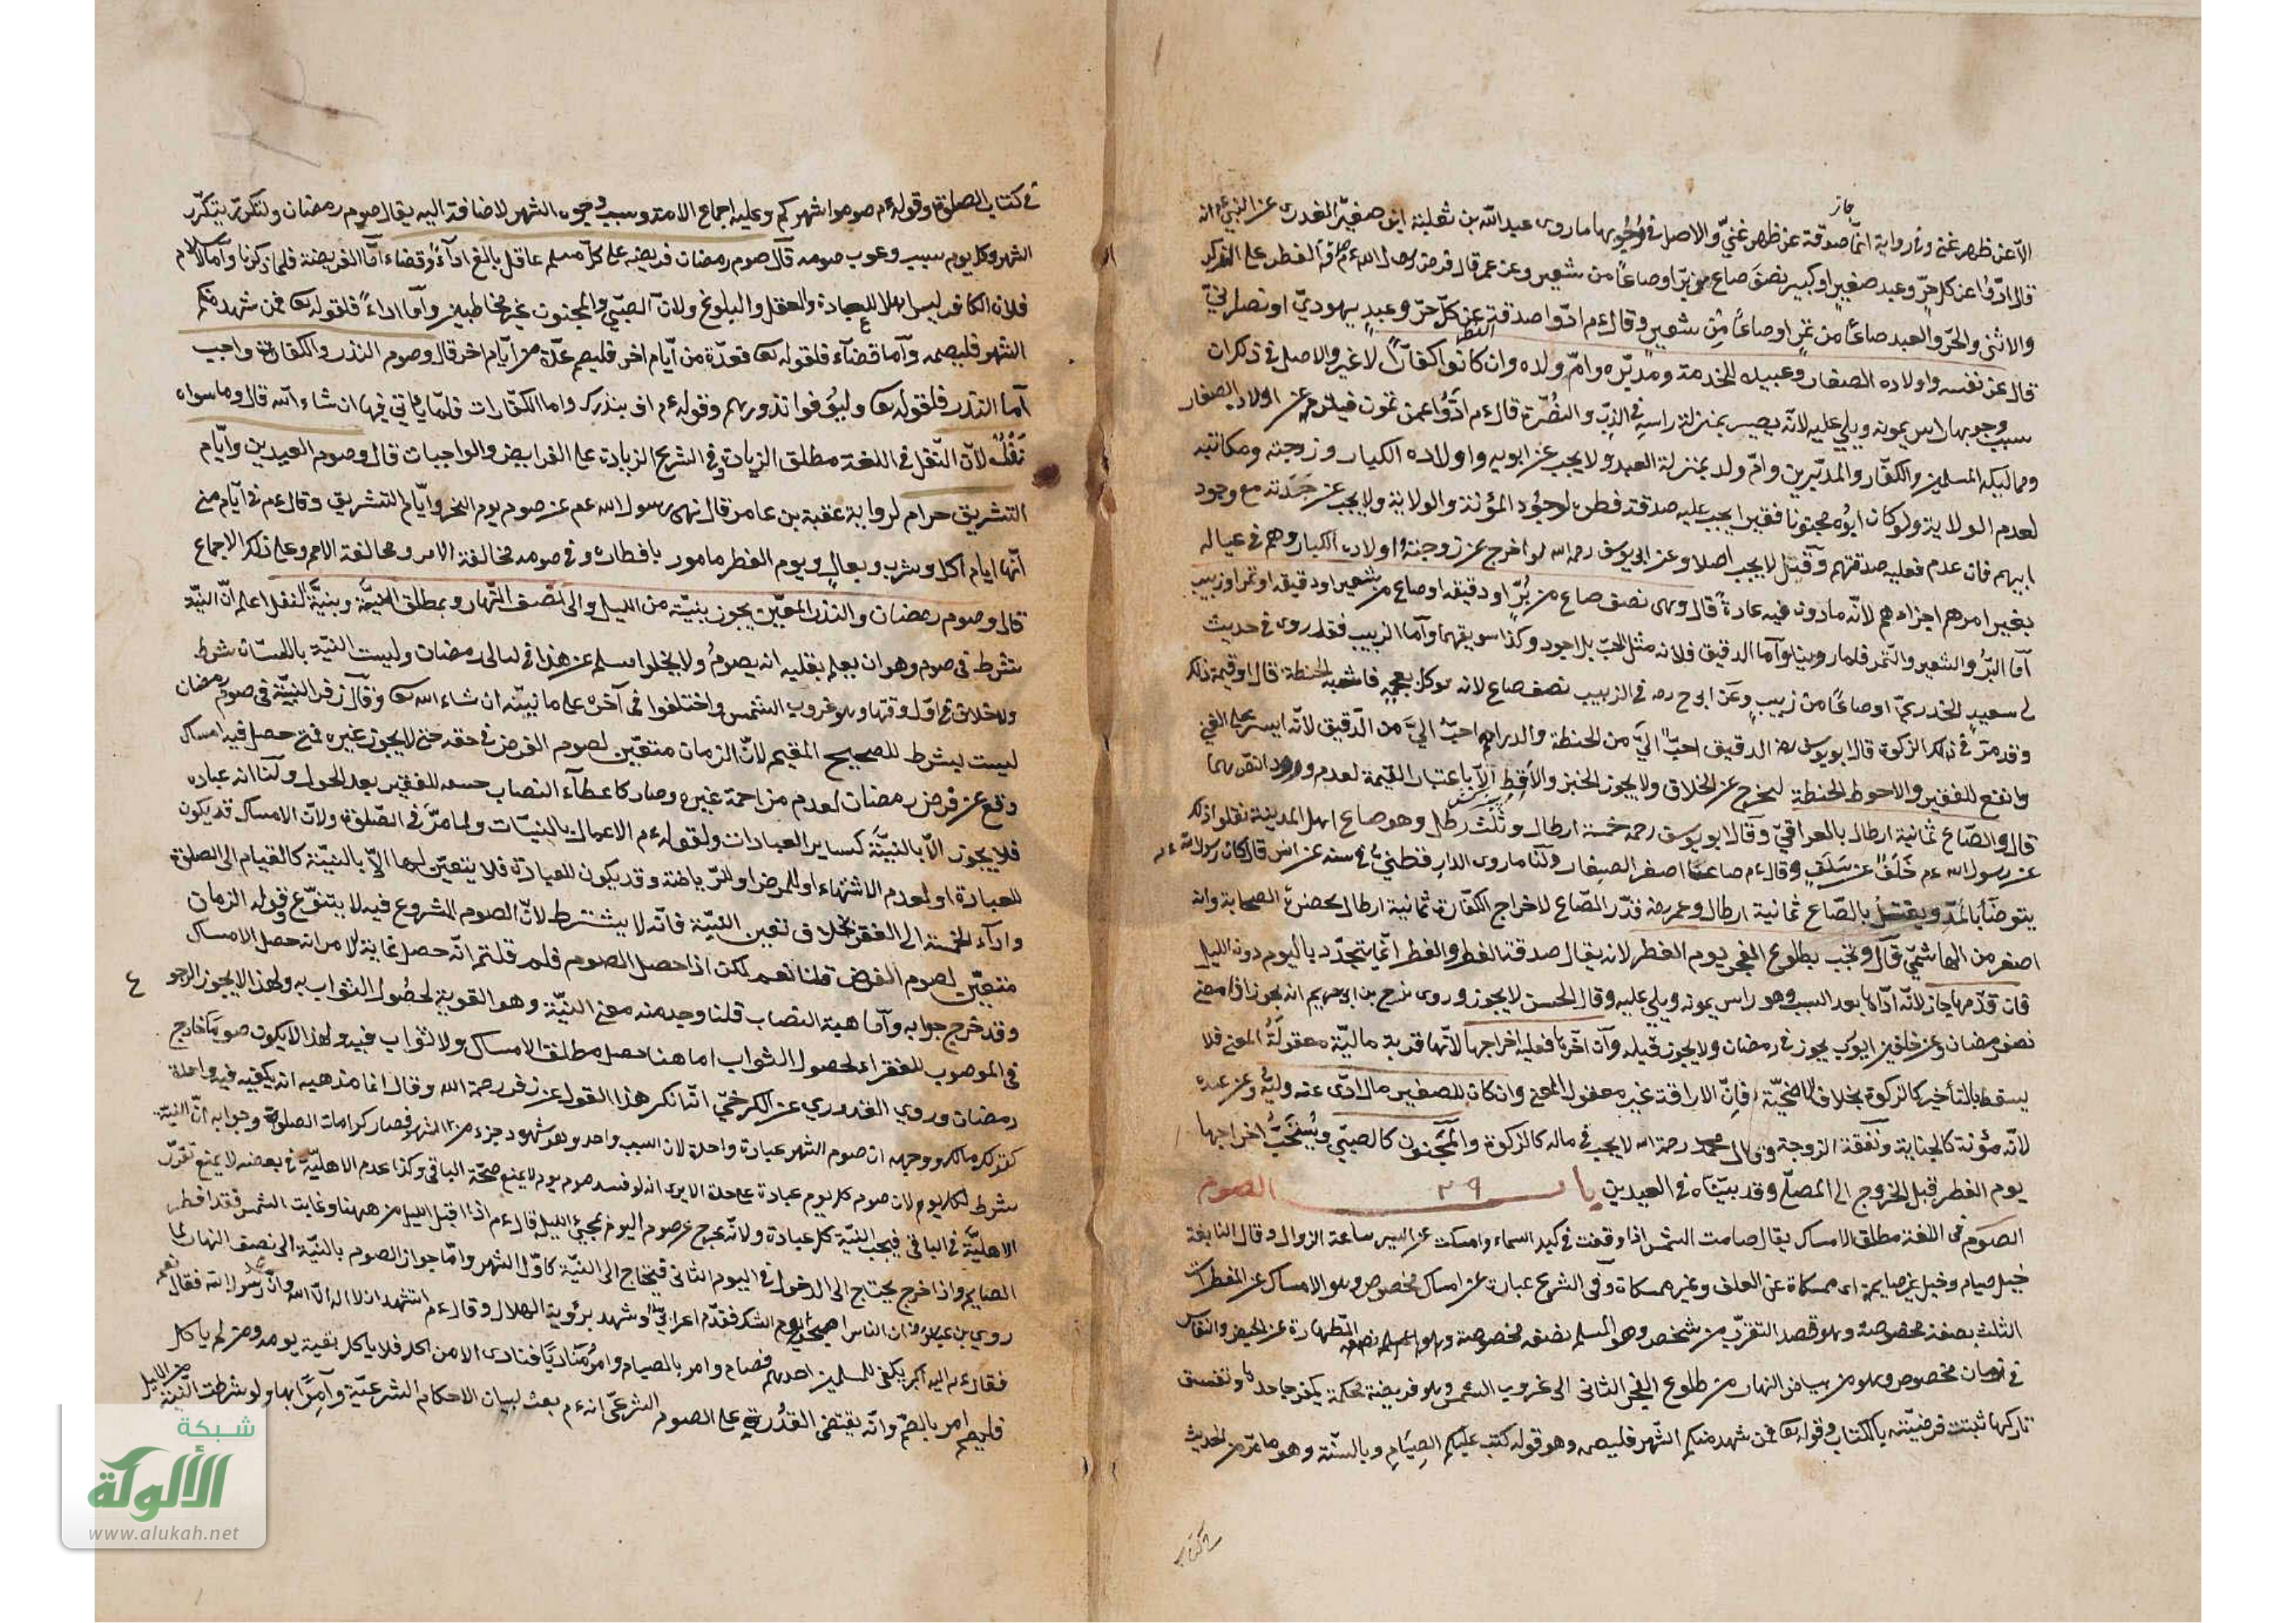 جائز
الا عن ظهر غنى وفي رواية انما صدقة عن ظهر غنيّ والاصل في وجوبها ما روى عبد الله بن ثعلبة ابن صغير العذرى عن النبي انه
قال ادّوا عن كل حرّ وعبد صغير او كبير نصف صاع من برّ او صاعًا من شعير وعن عمر قال فرض رسول الله صدقة الفطر على الذكر
والانثى والحرّ والعبد صاعًا من تمر او صاعًا من شعير وقال ءم ادّوا صدقة الفطر عن كلّ حرّ وعبد يهوديّ او نصرانيّ
قال عن نفسه واولاده الصغار وعبيده للخدمة ومدبّره وامّ ولده وان كانوا كفارًا لا غير والاصل في ذلك ان
سبب وجوبها راس يمونه ويلي عليه لانّه يصير بمنزلة راسه في الذبّ والنصرة قال ءم ادّوا عمن تمون فيلزم عن اولاده الصغار
ومماليكه المسلمين والكفّار والمدبّرين وامّ ولد بمنزلة العبد ولا يجب عن ابويه واولاده الكبار وزوجته ومكاتبه
لعدم الولاية ولو كان ابوه مجنونا فقيرا يجب عليه صدقة فطره لوجود المؤنة والولاية ولا يجب عن حَفَدته مع وجود
ابيهم فان عدم فعليه صدقتهم وقيل لا يجب اصلا وعن ابي يوسف رحمه الله لو اخرج عن زوجته واولاده الكبار وهم في عياله
بغير امرهم اجزاءهم لانّه ماذون فيه عادةً قال وهى نصف صاع من بُرّ او دقيقه او صاع من شعير او دقيقه او تمر او زبيب
امّا البرّ والشعير والتمر فلما روينا وامّا الدقيق فلانه مثل الحبّ بل اجود وكذا سويقهما وامّا الزبيب فقد روى في حديث
ابي سعيد الخدريّ او صاعًا من زبيب وعن ابي ح رحه في الزبيب نصف صاع لانه يوكل بعجمه فاشبه الحنطة قال او قيمة ذلك
وقد مرّ في ذلك الزكوة قال ابو يوسف رحه الدقيق احبّ اليّ من الحنطة والدراهم احبّ اليّ من الدقيق لانّه ايسر على الغني
وانفع للفقير والاحوط الحنطة ليخرج عن الخلاف ولا يجوز الخبز والاقط الّا باعتبار القيمة لعدم ورود النصّ بهما
قال والصّاع ثمانية ارطال بالعراقيّ وقال ابو يوسف رحه خمسة ارطال وثلث رطل وهو صاع اهل المدينة نقلوا ذلك
عن رسول الله ءم خَلَفٌ عن سَلَفٍ وقال ءم صاعنا اصغر الصيعان ولنا ما روى الدارقطنيّ في سننه عن انس قال كان رسول الله
يتوضّأ بالمدّ ويغتسل بالصّاع ثمانية ارطال وعمر رضه قدّر الصّاع لاخراج الكفّارة ثمانية ارطال بحضرة الصحابة وانه
اصغر من الهاشميّ قال وتجب بطلوع الفجر يوم الفطر لانه يقال صدقة الفطر والفطر انّما يتجدّد باليوم دون الليل
فان قدّمها جاز لانّه ادّاها بعد السبب وهو راس يمونه ويلي عليه وقال الحسن لا يجوز وروى نوح بن ابى مريم انه يجوز اذا مضى
نصف رمضان وعن خلف بن ايوب يجوز في رمضان ولا يجوز قبله وان اخّرها فعليه اخراجها لانّها قربة ماليّة معقولةُ المعنى فلا
يسقط بالتأخير كالزكوة بخلاف الاضحيّة فانّ الاراقة غير معقول المعنى وان كان للصغير مال ادّى عنه وليّه وعن عبده
لانّه مؤنة كالجناية ونفقة الزوجة وقال محمد رحمة الله لا يجب في ماله كالزكوة والمجنون كالصبّي ويُستحبّ اخراجها
يوم الفطر قبل الخروج الى المصلّى وقد بيّنّاه في العيدين باب ٢٩ الصوم
الصوم فى اللغة مطلق الامساك يقال صامت الشمس اذا وقفت في كبد السماء وامسكت عن السير ساعة الزوال وقال النابغة
خيل صيام وخيل غير صايمة اى ممسكة عن العلف وغير ممسكة وفى الشرع عبارة عن امساك مخصوص وهو الامساك عن المفطرات
الثلث بصفة مخصوصة وهو قصد التقرّب من شخص وهو المسلم بصفة مخصوصة وهو الطهارة عن الحيض والنفاس
في زمان مخصوص وهو من بياض النهار من طلوع الفجر الثانى الى غروب الشمس وهو فريضة محكمة يكفر جاحدها ويفسق
تاركها ثبتت فرضيّته بالكتاب وقوله تعا فمن شهد منكم الشّهر فليصمه وهو قوله كتب عليكم الصيام وبالسنّة وهو ما مرّ من الحديث
في كتاب
في كتاب الصلوة وقوله ءم صوموا شهركم وعليه اجماع الامة وسبب وجوبه الشهر لاضافته اليه يقال صوم رمضان ولتكرّره بتكرّر
الشهر وكل يوم سبب وجوب صومه قال صوم رمضان فريضة على كلّ مسلم عاقل بالغ اداءً وقضاءً امّا الفريضة فلما ذكرنا وامّا الاسلام
فلان الكافر ليس اهلا للعبادة والعقل والبلوغ ولانّ الصبّي والمجنون غير مخاطبين وامّا اداءً فلقوله تعا فمن شهد منكم
الشهر فليصمه وامّا قضاءً فلقوله تعا فعدّة من ايّام اخر فليصم عدّة من ايّام اخر قال وصوم النذر والكفارة واجب
امّا النذر فلقوله تعا وليوفوا نذورهم وقوله ءم اوف بنذرك واما الكفّارات فلما ياتي فيها ان شاء الله قال وما سواه
نفلٌ لانّ النّفل في اللغة مطلق الزيادة وفي الشرع الزيادة على الفرايض والواجبات قال وصوم العيدين وايّام
التشريق حرام لرواية عقبة بن عامر قال نهى رسول الله عم عن صوم يوم النحر وايّام التشريق وقال عم في ايّام منى
انّها ايام اكل وشرب وبعال ويوم الفطر مامور بافطاره وفي صومه مخالفة الامر ومخالفة الامر وعلى ذلك الاجماع
قال وصوم رمضان والنذر المعيّن يجوز بنيّة من الليل والى نصف النّهار وبمطلق النيّة وبنيّة النفل اعلم انّ النيّة
شرط فى صوم وهو ان يعلم بقلبه انه يصوم ولا يخلوا مسلم عن هذا في ليالى رمضان وليست النيّة باللسان شرط
ولا خلاف في اوّل وقتها وهو غروب الشمس واختلفوا فى آخره على ما نبيّنه ان شاء الله تعا وقال زفر النيّة في صوم رمضان
ليست بشرط للصحيح المقيم لانّ الزمان متعيّن لصوم الفرض في حقه حتى لا يجوز غيره فمتى حصل فيه امساك
وقع عن فرض رمضان لعدم مزاحمة غيره وصار كاعطاء النصاب جميعه للفقير بعد الحول ولنا انه عبادة
فلا يجوز الّا بالنيّة كساير العبادات ولقوله ءم الاعمال بالنيات ولما مرّ في الصّلوة ولانّ الامساك قد يكون
للعبادة او لعدم الاشتهاء او للمرض او للرّياضة وقد يكون للعبادة فلا يتعيّن لها الّا بالنيّة كالقيام الى الصلوة
واداء الخمسة الى الفقير بخلاف تعيين النيّة فانّه لا يشترط لانّ الصوم المشروع فيه لا يتنوّع وقوله الزمان
متعيّن لصوم الفرض قلنا نعم لكن اذا حصل الصوم فلم قلتم انّه حصل غاية الامر انه حصل الامساك
وقد خرج جوابه وأمّا هبة النصاب قلنا وجد منه معنى النيّة وهو القربة لحصول الثواب به ولهذا لا يجوز الرجوع
فى الموهوب للفقراء لحصول الثواب اما هنا حصل مطلق الامساك ولا ثواب فيه ولهذا لا يكون صوما خارج
رمضان وروي القدوري عن الكرخيّ انّه انكر هذا القول عن زفر رحمة الله وقال انما مذهبه انه يكفيه نيّة واحدة
كقول مالك ووجهه ان صوم الشهر عبادة واحدة لان السبب واحد وهو شهود جزء من الشهر فصار كركعات الصلوة وجوابه انّ النيّة
شرط لكل يوم لان صوم كل يوم عبادة على حدة الا يرى انه لو فسد صوم يوم لا يمنع صحّة الباقي وكذا عدم الاهليّة في بعضه لا يمنع تقرّر
الاهليّة في الباقى فيجب النيّة لكل عبادة ولانّه يخرج عن صوم اليوم بمجيئ الليل قال ءم اذا اقبل الليل من ههنا وغابت الشمس فقد افطر
الصايم واذا خرج يحتاج الى الدخول في اليوم الثانى فيحتاج الى النيّة كاوّل الشهر وامّا جواز الصوم بالنيّة الى نصف النهار لما
روى بن عبّاس ان الناس اصبحوا يوم الشك فقدم اعرابيّ وشهد برؤية الهلال وقال ءم اتشهد ان لا اله الّا الله وانّ رسول الله فقال نعم
فقال ءم الله اكبر يكفى للمسلمين احدهم فصام وامر بالصيام وامر مناديًا فنادى الا من اكل فلا ياكل بقية يومه ومن لم ياكل
فليصم امر بالصوم وانّه يقتضى القدرة على الصوم الشرعيّ انه ءم بعث لبيان الاحكام الشرعيّة وآمرًا بها ولو شرطت النيّة من الليل
شبكة
الألوكة
www.alukah.net